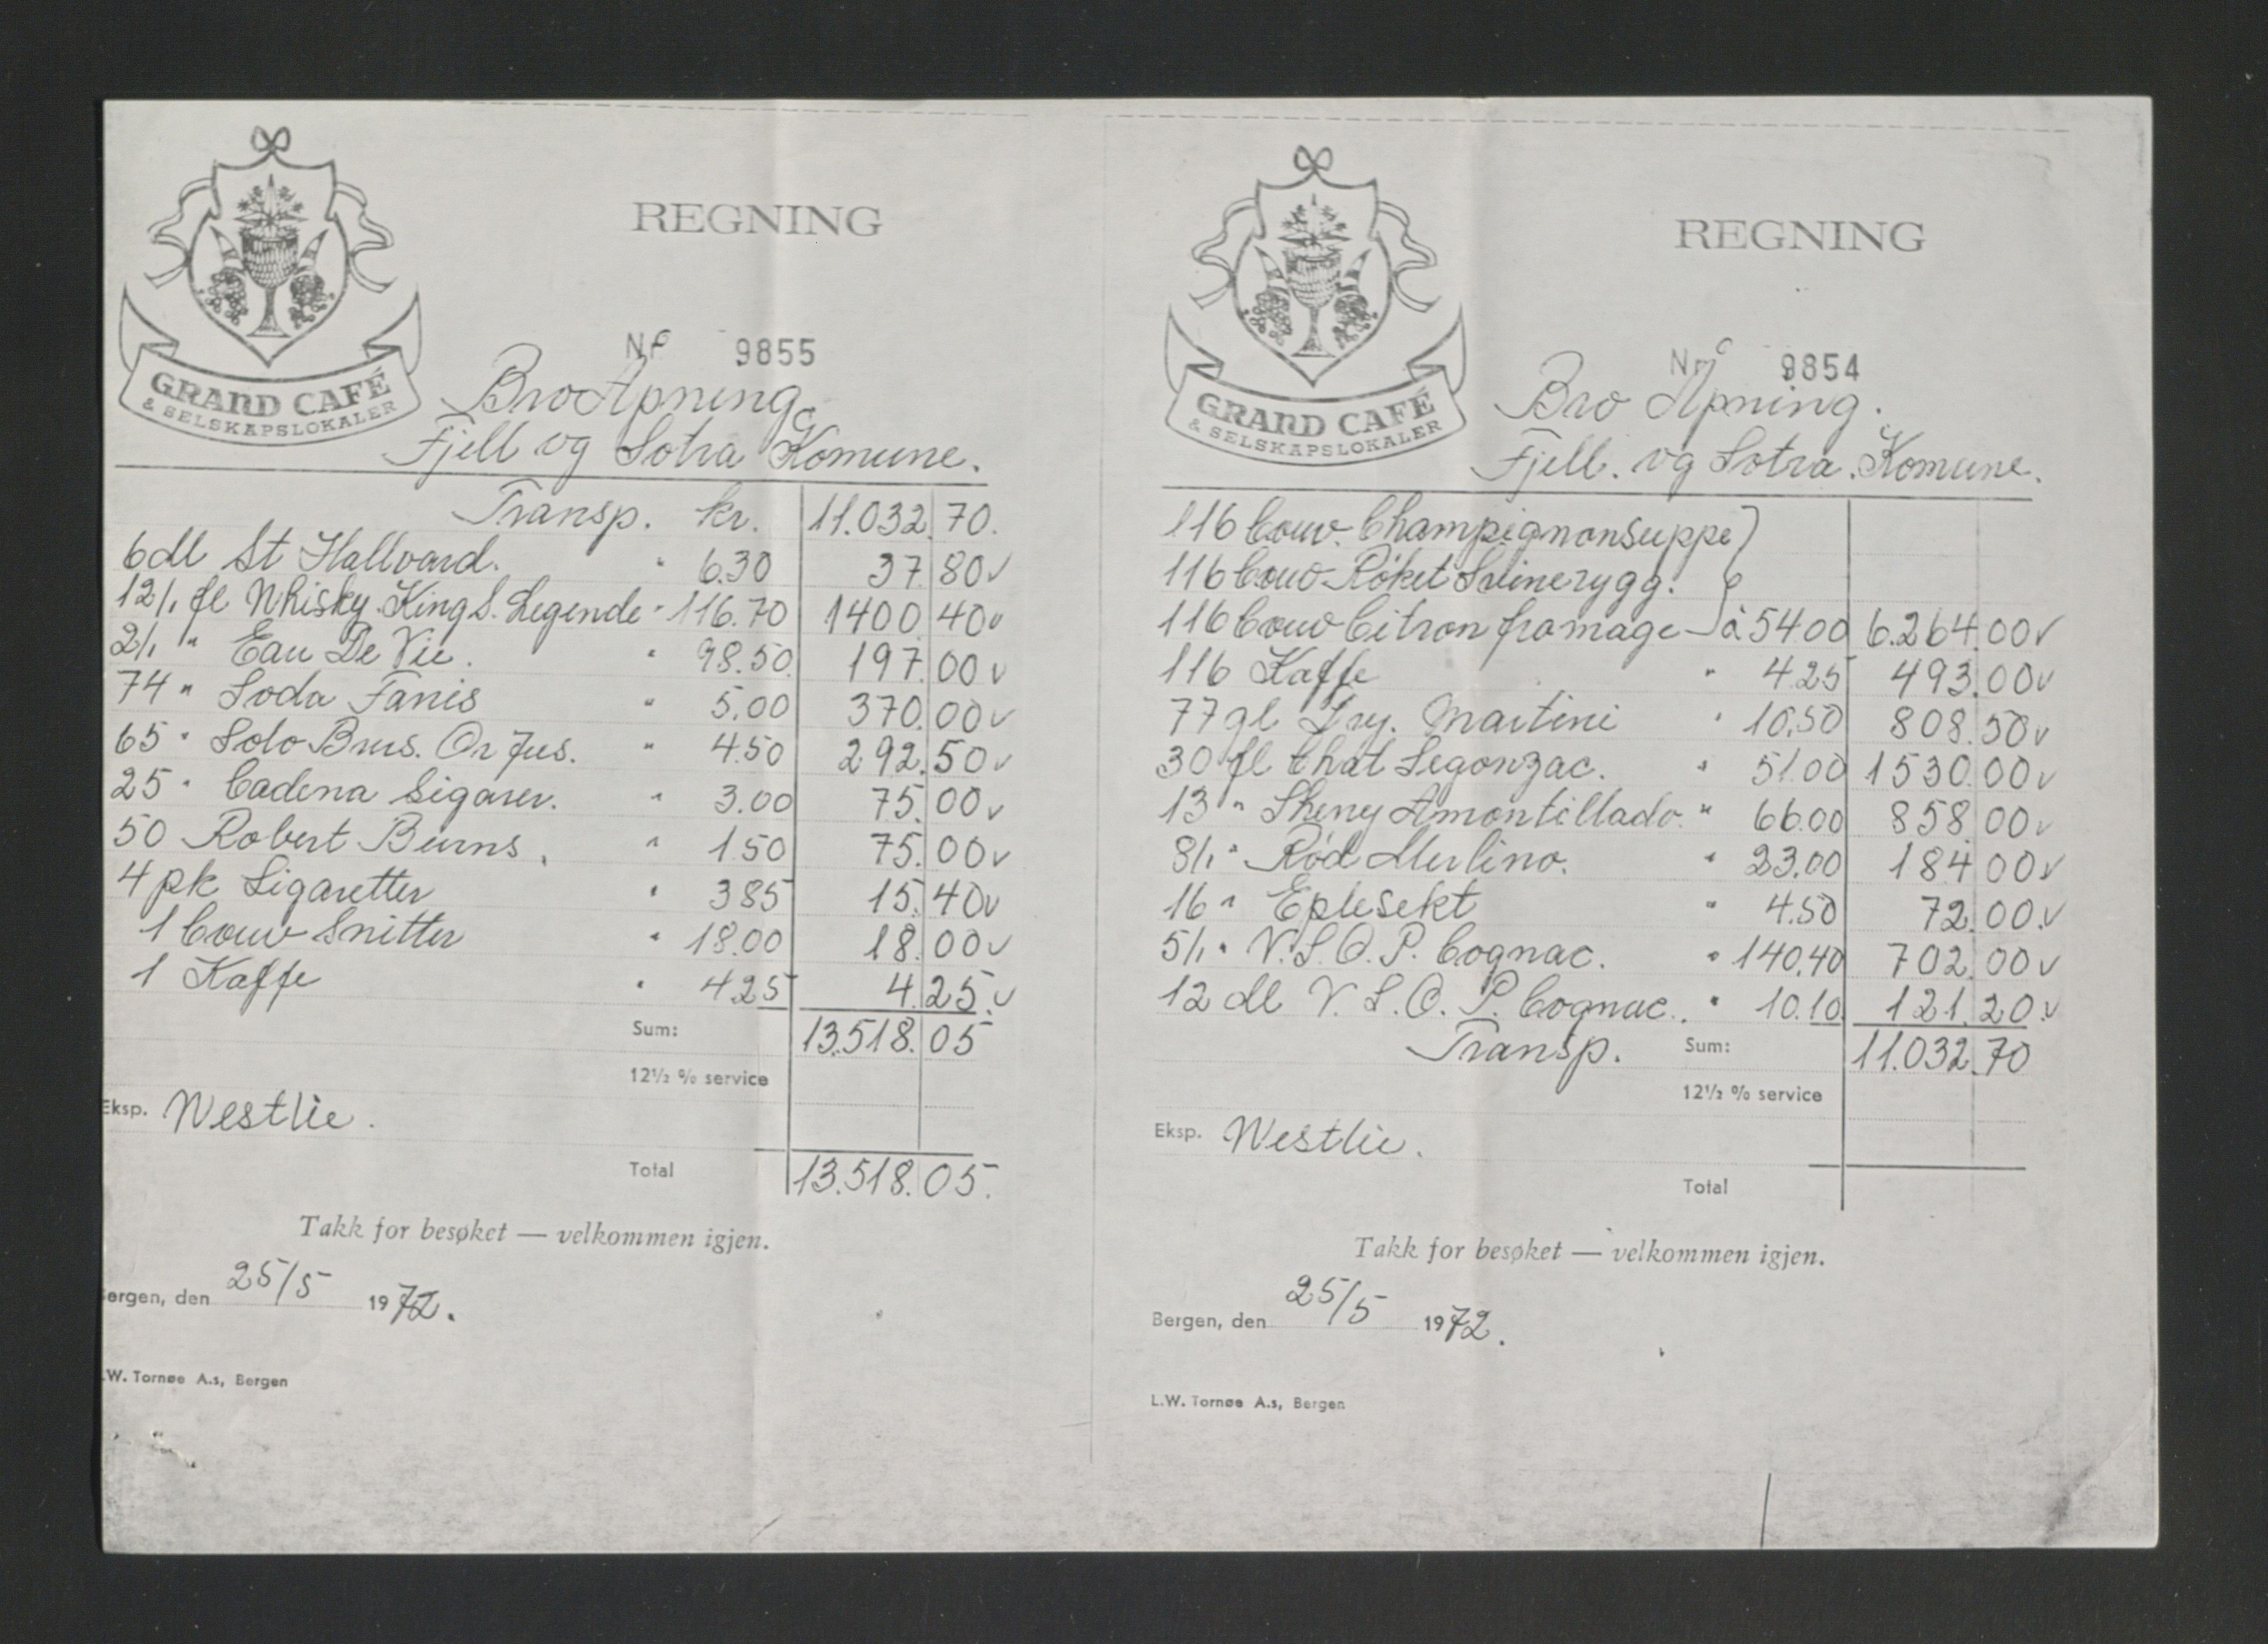 GRAND CAFÉ
& SELSKAPSLOKALER
REGNING
Nr 9855
Bro Åpning.
Fjell og Sotra Komune.
Transp. kr. 11.032.70.
6 dl St Hallvard. " 6.30 37.80 v
12/1 fl Whisky King S. Legende " 116.70 1400 40 v
2/1 " Eau De Vie. " 98.50 197.00 v
74 " Soda Fanis " 5.00 370.00 v
65 " Solo Brus. Or Jus. " 4.50 292.50 v
25 " Cadena Sigarer. " 3.00 75.00 v
50 Robert Burns. " 1.50 75.00 v
4 pk Sigaretter " 385 15.40 v
1 Couv Snitter " 18.00 18.00 v
1 Kaffe " 425 4.25 v
Sum: 13.518.05
12½ % service
Eksp. Westlie.
Total 13.518.05.
Takk for besøket — velkommen igjen.
ergen, den 25/5 1972.
.W. Tornøe A.s, Bergen
GRAND CAFÉ
& SELSKAPSLOKALER
REGNING
Nr 9854
Bro Åpning.
Fjell. og Sotra. Komune.
116 Couv. Champignonsuppe
116 Couv Røket Svinerygg.
116 Couv Citron fromage à 54.00 6.264.00 v
116 Kaffe " 4.25 493.00 v
77 gl Dry. Martini " 10.50 808.50 v
30 fl Chat Segonzac. " 51.00 1530.00 v
13 " Sherry Amontillado. " 66.00 858 00 v
8/1 " Rød Merlino. " 23.00 184 00 v
16 " Eplesekt " 4.50 72.00 v
5/1 " V.S.O.P. Cognac. " 140.40 702.00 v
12 dl V.S.O.P. Cognac. " 10.10 121.20 v
Transp. Sum: 11.032.70
12½ % service
Eksp. Westlie.
Total
Takk for besøket — velkommen igjen.
Bergen, den 25/5 1972.
L.W. Tornøe A.s, Bergen